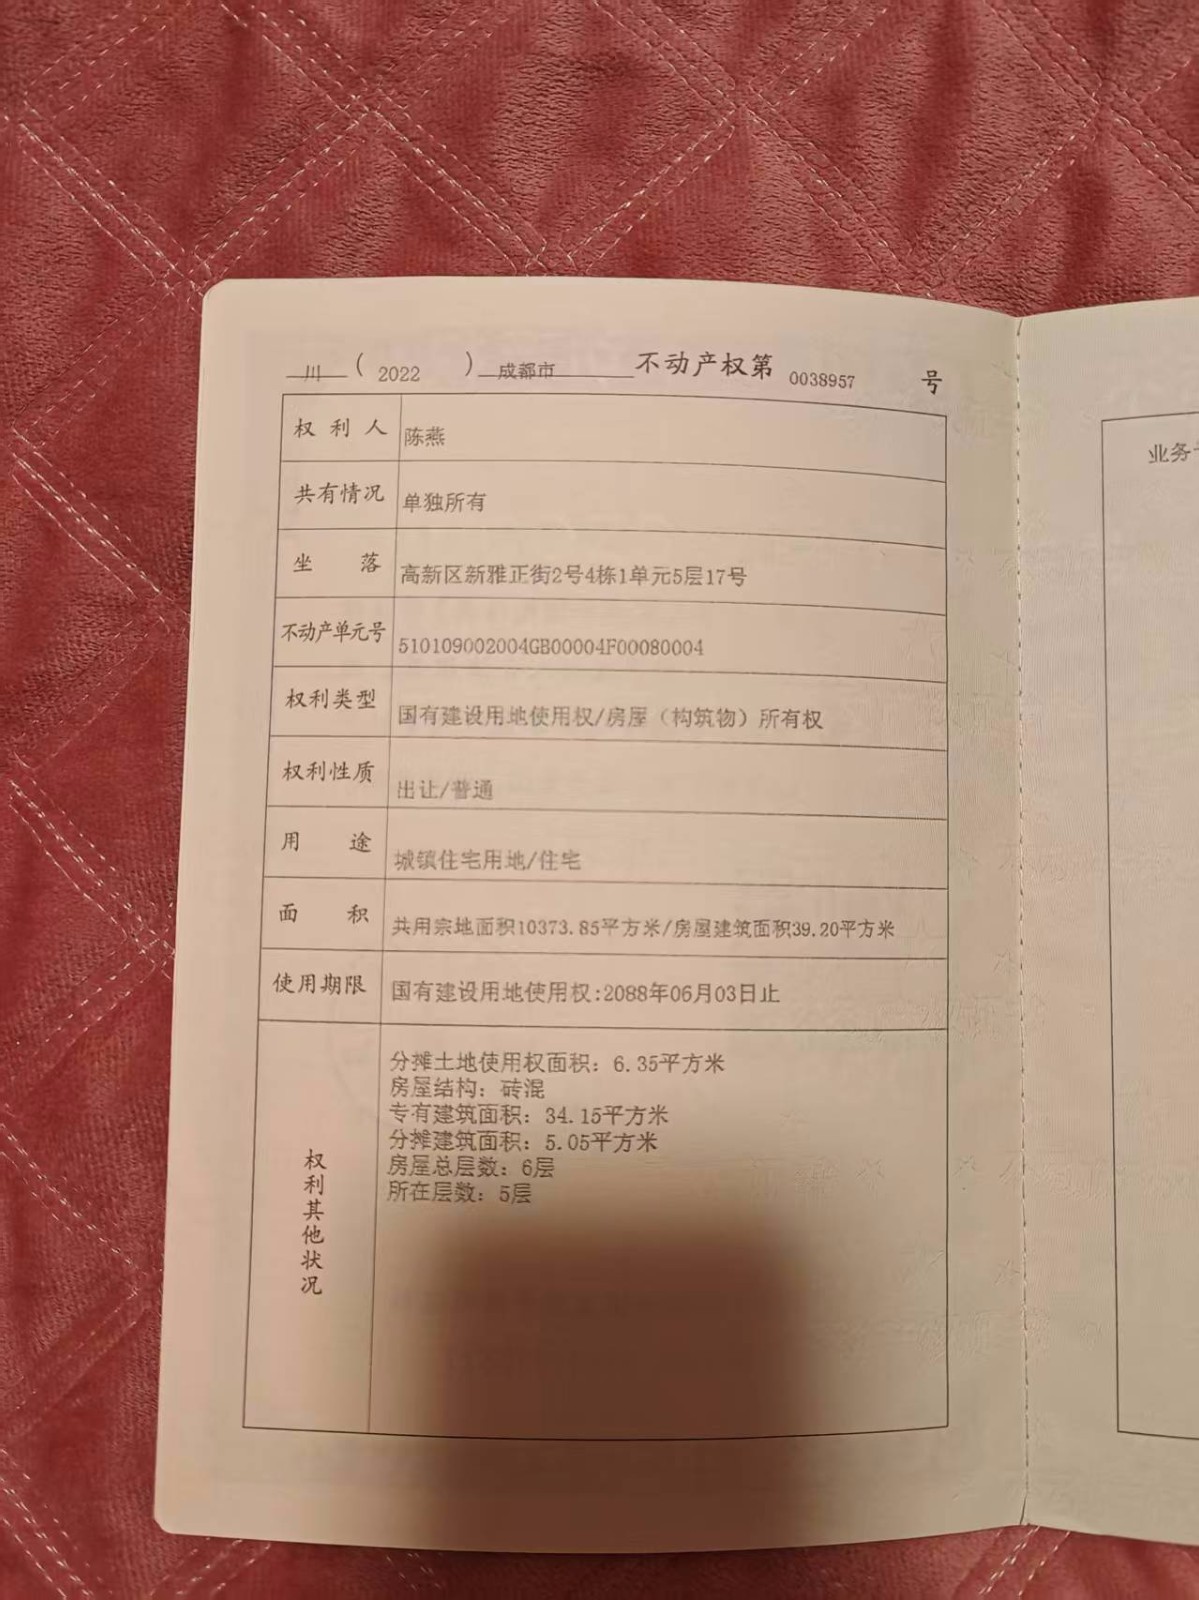 川（2022）成都市 不动产权第 0038957 号
权利人 陈燕
共有情况 单独所有
坐落 高新区新雅正街2号4栋1单元5层17号
不动产单元号 510109002004GB00004F00080004
权利类型 国有建设用地使用权/房屋（构筑物）所有权
权利性质 出让/普通
用途 城镇住宅用地/住宅
面积 共用宗地面积10373.85平方米/房屋建筑面积39.20平方米
使用期限 国有建设用地使用权:2088年06月03日止
权利其他状况
分摊土地使用权面积：6.35平方米
房屋结构：砖混
专有建筑面积：34.15平方米
分摊建筑面积：5.05平方米
房屋总层数：6层
所在层数：5层
业务